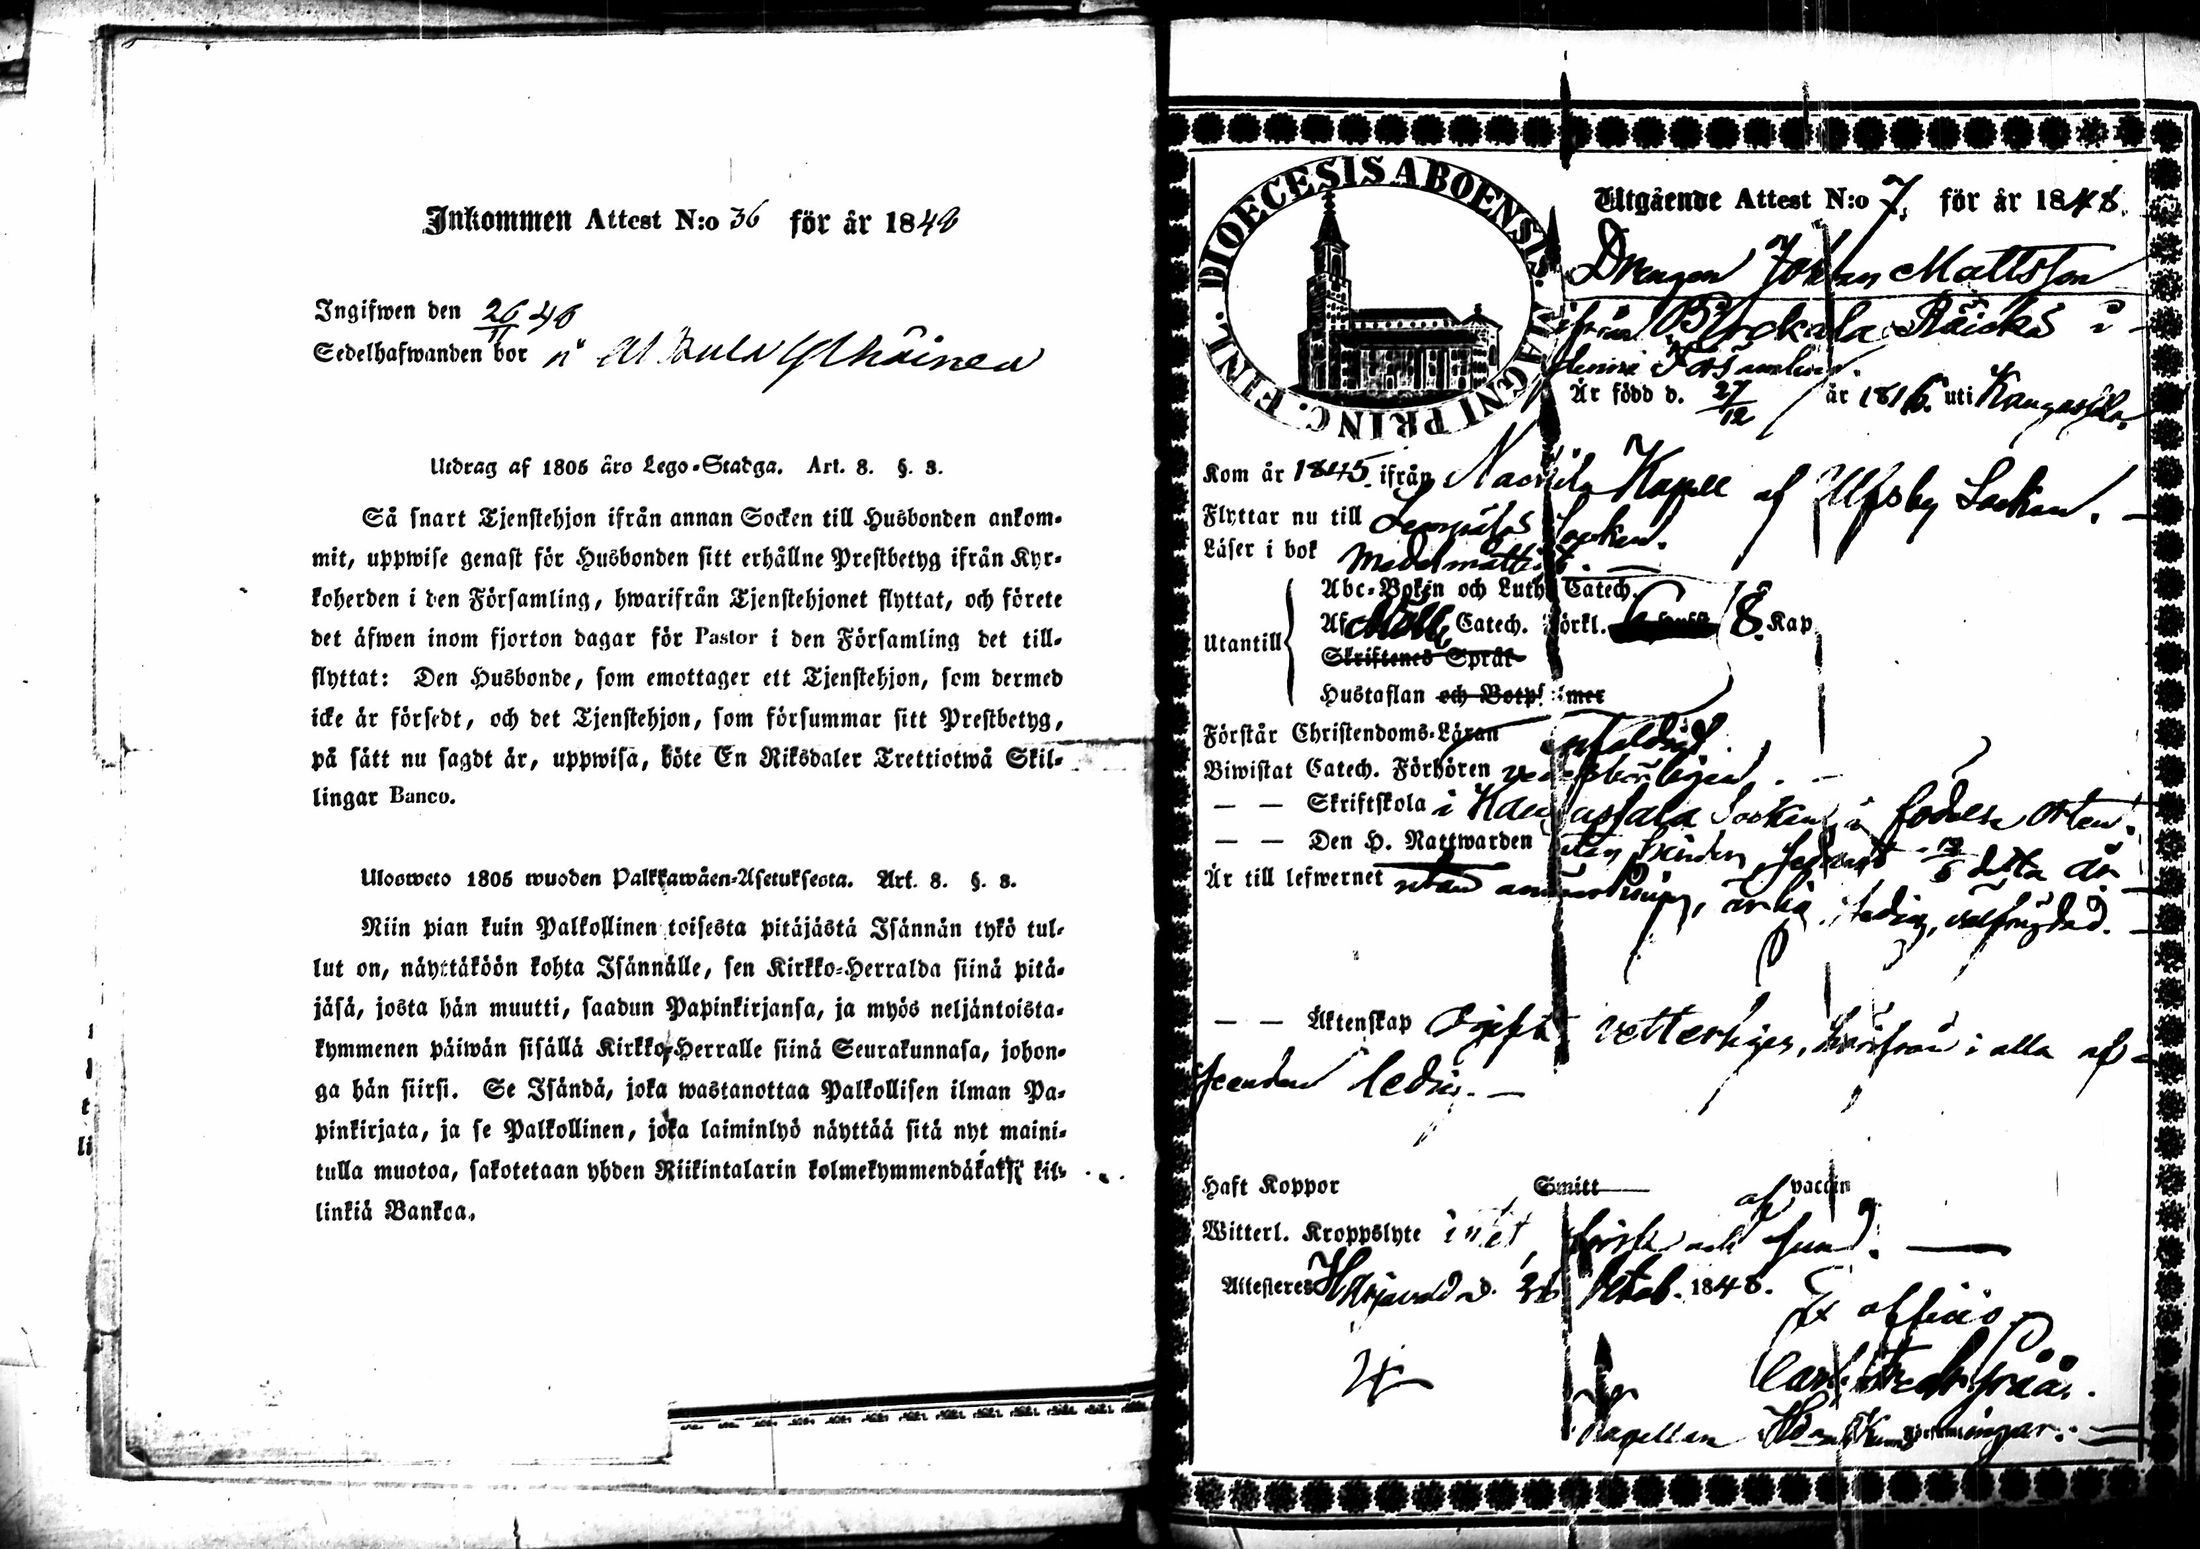 Inkommen Attest N:o 36 för år 1848
Ingifwen den 26/11 48
Sedelhafwanden bor i
Utdrag af 1805 års Lego-Stadga. Art. 8. §. 3.
Så snart Tjenstehjon ifrån annan Socken till Husbonden ankom-
mit, uppwise genast för Husbonden sitt erhållne Prestbetyg ifrån Kyr-
koherden i den Församling, hwarifrån Tjenstehjonet flyttat, och förete
det äfwen inom fjorton dagar för Pastor i den Församling det till-
flyttat: Den Husbonde, som emottager ett Tjenstehjon, som dermed
icke är försedt, och det Tjenstehjon, som försummar sitt Prestbetyg,
på sätt nu sagdt är, uppwisa, böte En Riksdaler Trettiotwå Skil-
lingar Banco.
Ulosweto 1805 wuoden Palkkawäen-Asetuksesta. Art. 8. §. 3.
Niin pian kuin Palkollinen toisesta pitäjästä Isännän tykö tul-
lut on, näyttäköön kohta Isännälle, sen Kirkko-Herralda siinä pitä-
jäsä, josta hän muutti, saadun Papinkirjansa, ja myös neljäntoista-
kymmenen päiwän sisällä Kirkko-Herralle siinä Seurakunnasa, johon-
ga hän siirsi. Se Isändä, joka wastanottaa Palkollisen ilman Pa-
pinkirjata, ja se Palkollinen, joka laiminlyö näyttää sitä nyt maini-
tulla muotoa, sakotetaan yhden Riikintalarin kolmekymmendäkaksi kil-
linkiä Bankoa.
DIOECESIS ABOENSIS. MAGNI PRINC. FINL.
Utgående Attest N:o 7. för år 1848.
Drengen Johan Mattsson
ifrån Räicks i
denna Församling.
Är född d. 27/12 år 1816. uti Kangasala
Kom år 1845. ifrån Kapell af Ulfsby Socken.
Flyttar nu till Socken.
Läser i bok medelmåttigt.
Abc-Boken och Luth. Catech.
Utantill Af Catech. Förkl. 8. Kap
Skriftenes Språk
Hustaflan och Botpsalmer
Förstår Christendoms-Läran enfaldigt.
Biwistat Catech. Förhören
— — Skriftskola i Kangasala Socken, i födelse orten.
— — Den H. Nattwarden detta år
Är till lefwernet utan anmärkning, ärlig, stadig, välfrägdad.
— — Äktenskap Ogift vetterligen, härifrån i alla af-
seenden ledig. —
Haft Koppor Smitt af vaccin
Witterl. Kroppslyte intet, frisk och sund. —
Attesteres Harjavalda d. 26 Octob. 1848.
Ex officio
Carl Fredr.
Kapellan